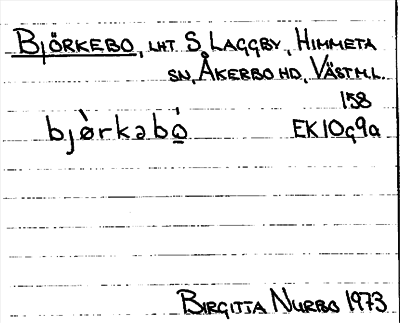 BJÖRKEBO, LHT S. LAGGBY, HIMMETA
SN, ÅKERBO HD, VÄSTM.L.
158
bjö̀rkəbó̲ EK10g9a
BIRGITTA NURBO 1973